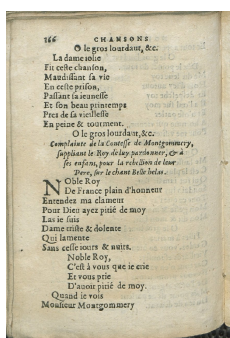 166 CHANSONS
O le gros lourdaut, &c.
La dame iolie
Fit ceste chanson,
Maudissant sa vie
En ceste prison,
Passant sa ieunesse
Et son beau printemps
Pres de sa vieillesse
En peine & tourment.
O le gros lourdaut, &c.
Complainte de la Contesse de Montgommery,
suppliant le Roy de luy pardonner, & à
ses enfans, pour la rebellion de leur
Pere, sur le chant Belle helas.
Noble Roy
De France plain d'honneur
Entendez ma clameur
Pour Dieu ayez pitié de moy
Las ie suis
Dame triste & dolente
Qui lamente
Sans cesse iours & nuits.
Noble Roy,
C'est à vous que ie crie
Et vous prie
D'auoir pitié de moy.
Quand ie vois
Monsieur Montgommery